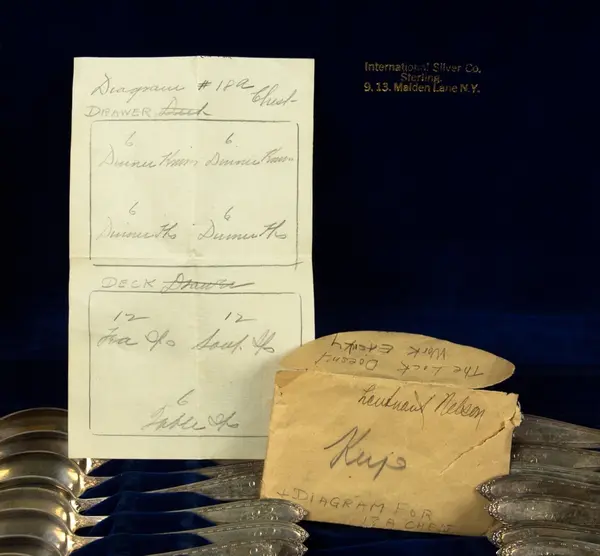 International Silver Co,
Sterling.
9. 13. Maiden Lane N.Y.
Diagram # 18a Chest
DRAWER Deck
6 6
Dinner Knives Dinner Knives
6 6
Dinner Fks Dinner Fks
DECK Drawer
12 12
Tea Sps Soup Sps
6
Table Sps
The Lock Doesnt
Work Exactly
Lieutenant Nelson
Keep
+ DIAGRAM FOR
CHEST